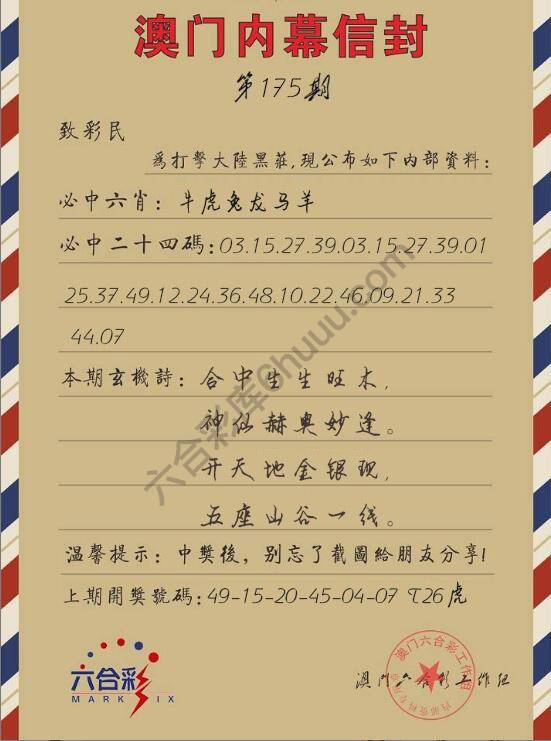 澳门内幕信封
第175期
致彩民
為打擊大陸黑莊,現公布如下内部資料:
必中六肖: 牛虎兔龙马羊
必中二十四碼:03.15.27.39.03.15.27.39.01
25.37.49.12.24.36.48.10.22.46.09.21.33
44.07
本期玄機詩: 合中生生旺木,
神仙赫奥妙逢。
开天地金银现,
五座山谷一线。
温馨提示: 中獎後, 别忘了截圖給朋友分享!
上期開獎號碼:49-15-20-45-04-07 T26虎
六合彩
MARK SIX
澳门六合彩工作组
澳门六合彩工作组
六合彩库@huuu.com